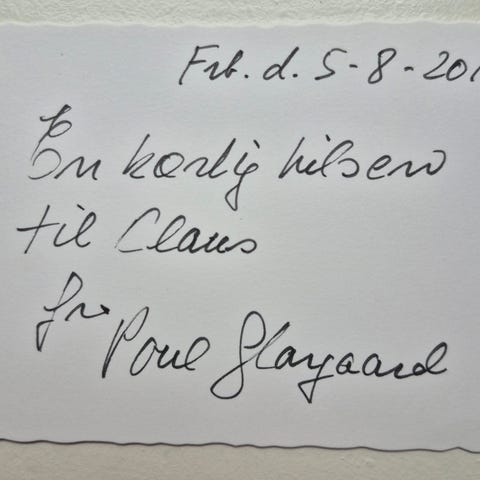 Frb. d. 5-8-201
En kærlig hilsen
til Claus
fra
Poul Glargaard